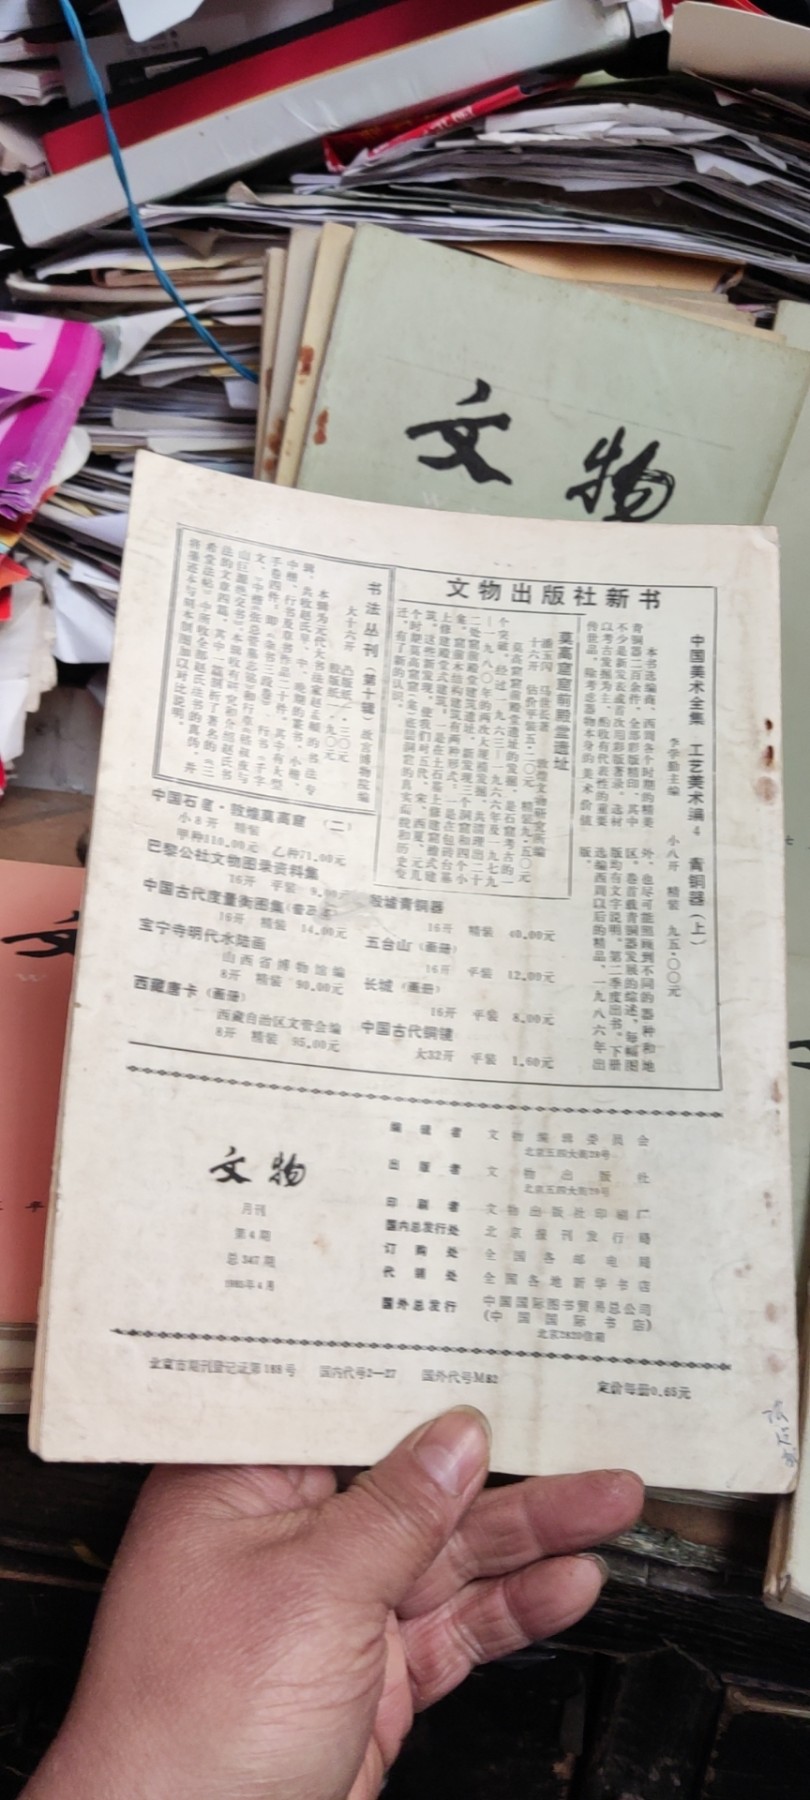 文物
文物出版社新书
中国美术全集 工艺美术编4 青铜器（上）
李学勤主编 小八开 精装 九五·〇〇元
本书选编商、西周各个时期的精美
青铜器二百余件，全部彩版精印，其中
不少是新发表或首次用彩版著录。选材
以考古发掘为主，酌收有代表性的重要
传世品。除考虑器物本身的美术价值
外，也尽可能照顾到不同的器种和地
区。卷首载青铜器发展的综述，每幅图
版均有文字说明。第二季度出书。下册
选编西周以后的精品，一九八六年出
版。
莫高窟窟前殿堂遗址
潘玉闪 马世长著 敦煌文物研究所编
十六开 估价平装五·二〇元 精装九·五〇元
莫高窟窟前殿堂遗址的发掘，是石窟考古的一
个突破。经过一九六三—一九六六年及一九七九
—一九八〇年的两次大规模发掘，共清理出二十
二处窟前殿堂建筑遗址，新发现三个洞窟和四个小
龛。窟前木结构建筑有两种形式，一是在包砌台基
上修建殿堂式建筑，一是在土石基上修建窟檐式建
筑。这些新发现，使我们对五代、宋、西夏、元几
个时期莫高窟窟
迁，有了新的认识。
书法丛刊（第十辑）故宫博物院编
大十六开 凸版纸二·三〇元
胶版纸一·九〇元
本辑为元代大书法家赵孟頫的书法专
辑，共收赵氏早、中、晚期的篆书、小楷、
中楷、行书及草书作品二十件。其中有大型
手卷四件，即《杂书三段卷》、行书《千字
文》、中楷《张总管墓志铭》和行草《嵇叔夜与
山巨源绝交书》。本辑收有研究和介绍赵氏书
法的文章四篇，其中一篇剖析了著名的《三
希堂法帖》中所收全部赵氏法书的真伪，并
将墨迹本与刻本制图加以对比说明。
中国石窟·敦煌莫高窟（二）
小8开 精装
甲种110.00元 乙种71.00元
巴黎公社文物图录资料集
16开 平装
中国古代度量衡图集（普及本）
16开 精装 14.00元
宝宁寺明代水陆画
山西省博物馆编
8开 精装 90.00元
西藏唐卡（画册）
西藏自治区文管会编
8开 精装 95.00元
殷墟青铜器
16开 精装 40.00元
五台山（画册）
16开 平装 12.00元
长城（画册）
16开 平装 8.00元
中国古代铜镜
大32开 平装 1.60元
文物
月刊
第4期
总347期
1985年4月
编辑者 文物编辑委员会
北京五四大街29号
出版者 文物出版社
北京五四大街29号
印刷者 文物出版社印刷厂
国内总发行处 北京报刊发行局
订购处 全国各邮电局
代销处 全国各地新华书店
国外总发行 中国国际图书贸易总公司
（中国国际书店）
北京2820信箱
北京市期刊登记证第188号 国内代号2—27 国外代号M82
定价每册0.65元